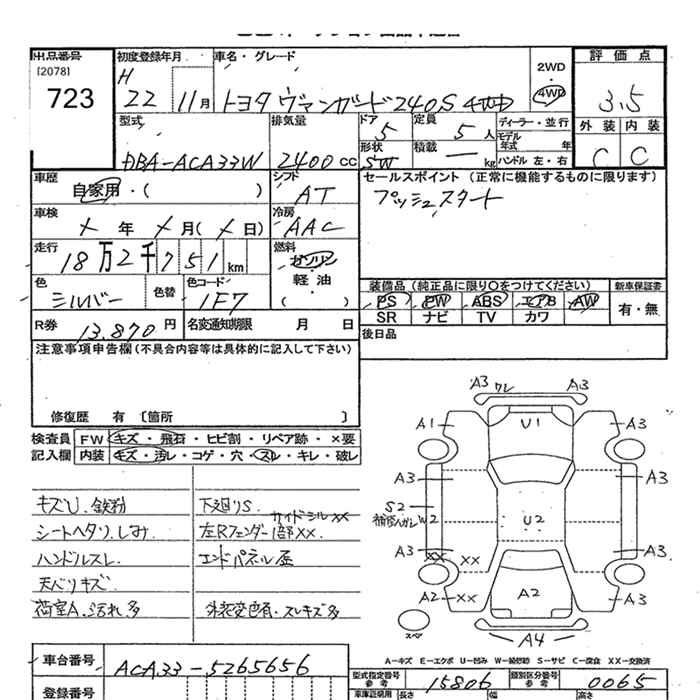 出品番号
[2078]
723
初度登録年月
H
22 11月
車名・グレード
トヨタ ヴァンガード 240S 4WD
2WD
・
4WD
評価点
3.5
外装 内装
C C
型式
DBA-ACA33W
排気量
2400 cc
ドア
5
定員
5 人
ディーラー・並行
モデル
年式 年
形状
SW
積載
— kg
ハンドル 左・右
車歴
自家用・( )
シフト
AT
セールスポイント (正常に機能するものに限ります)
プッシュスタート
車検
年 月( 日)
冷房
AAC
走行
18万2千751 km
燃料
ガソリン
・
軽油
( )
色
シルバー
色替
色コード
1F7
装備品 (純正品に限り○をつけてください)
新車保証書
PS PW ABS エアB AW
SR ナビ TV カワ
有・無
R券
13.870 円
名変通知期限 月 日
後日品
注意事項申告欄 (不具合内容等は具体的に記入して下さい)
修復歴 有 〔箇所 〕
検査員
記入欄
FW キズ・飛石・ヒビ割・リペア跡・×要
内装 キズ・汚レ・コゲ・穴・スレ・キレ・破レ
キズU、鉄粉
シートヘタリ、しみ
ハンドルスレ
天バリキズ
荷室A、汚れ多
下廻りS
サイドシルXX
左Rフェンダー1部XX
エンドパネル歪
外装変色有・スレキズ多
A3 ワレ A3
A1 U1 A3
A3 A3
S2
W2 U2
A3 A3
XX XX
A2 XX A2 A3
スペア
A4
A-キズ E-エクボ U-凹み W-補修跡 S-サビ C-腐食 XX-交換済
車台番号
ACA33-5265656
登録番号
型式指定番号
参考
15806
類別区分番号
参考
0065
車庫証明用
長さ 幅 高さ